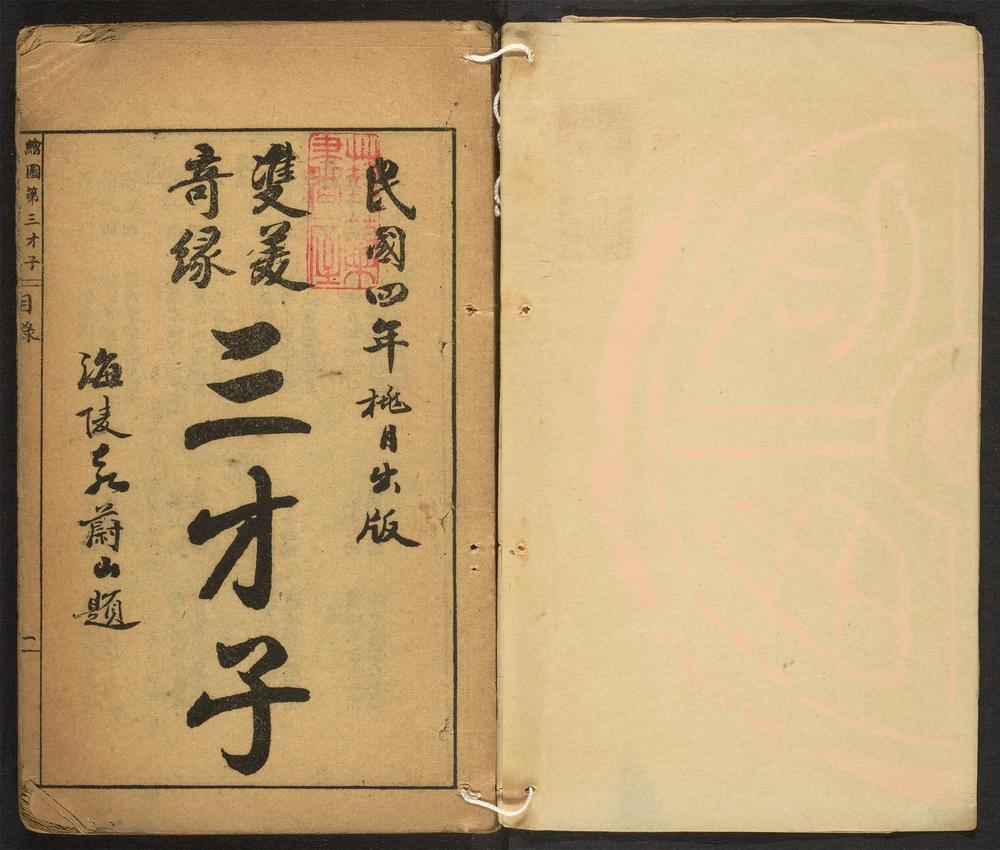 民國四年桃月出版
雙美
奇緣
三才子
海陵袁蔚山題
繪圖第三才子
目錄
二